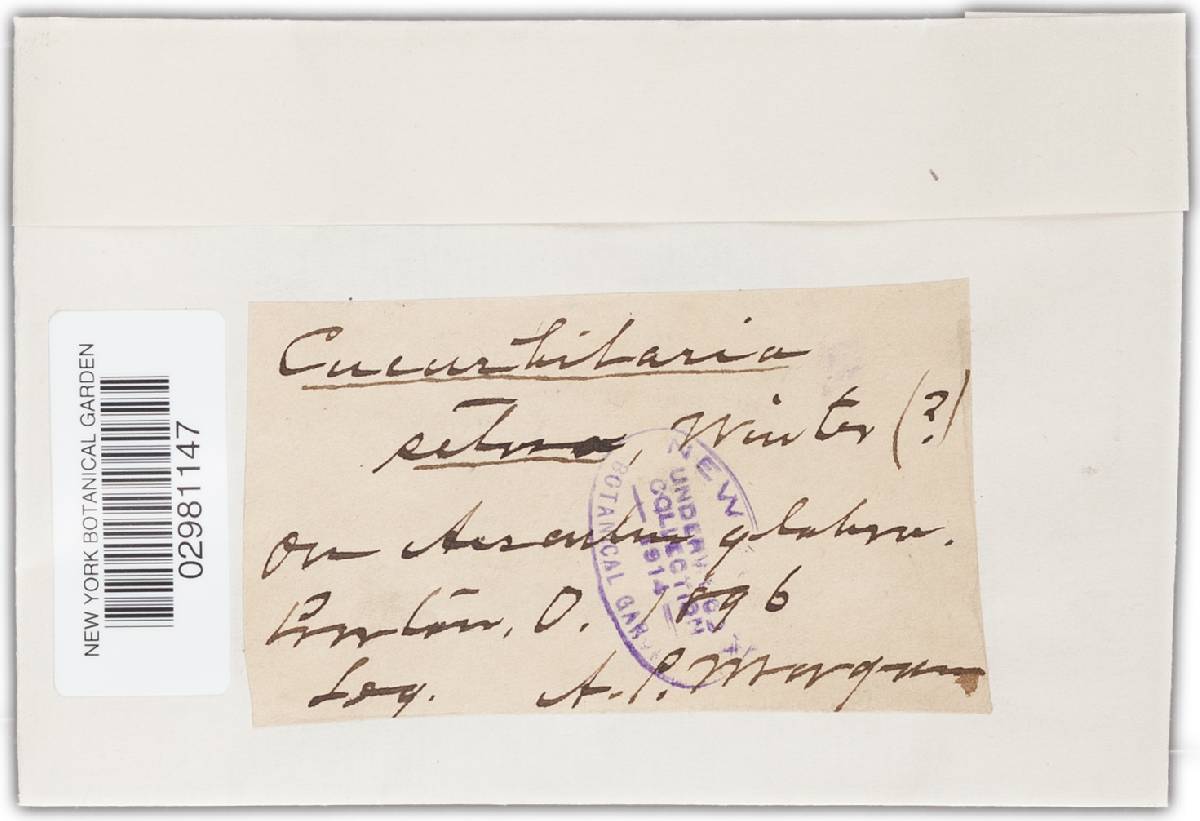 NEW YORK BOTANICAL GARDEN
02981147
Cucurbitaria
setosa, Winter (?)
on Aesculus glabra.
Preston, O. 1896
Leg. A. P. Morgan
NEW Y
UNDERWOOD
COLLECTION
— 1914 —
BOTANICAL GARDEN